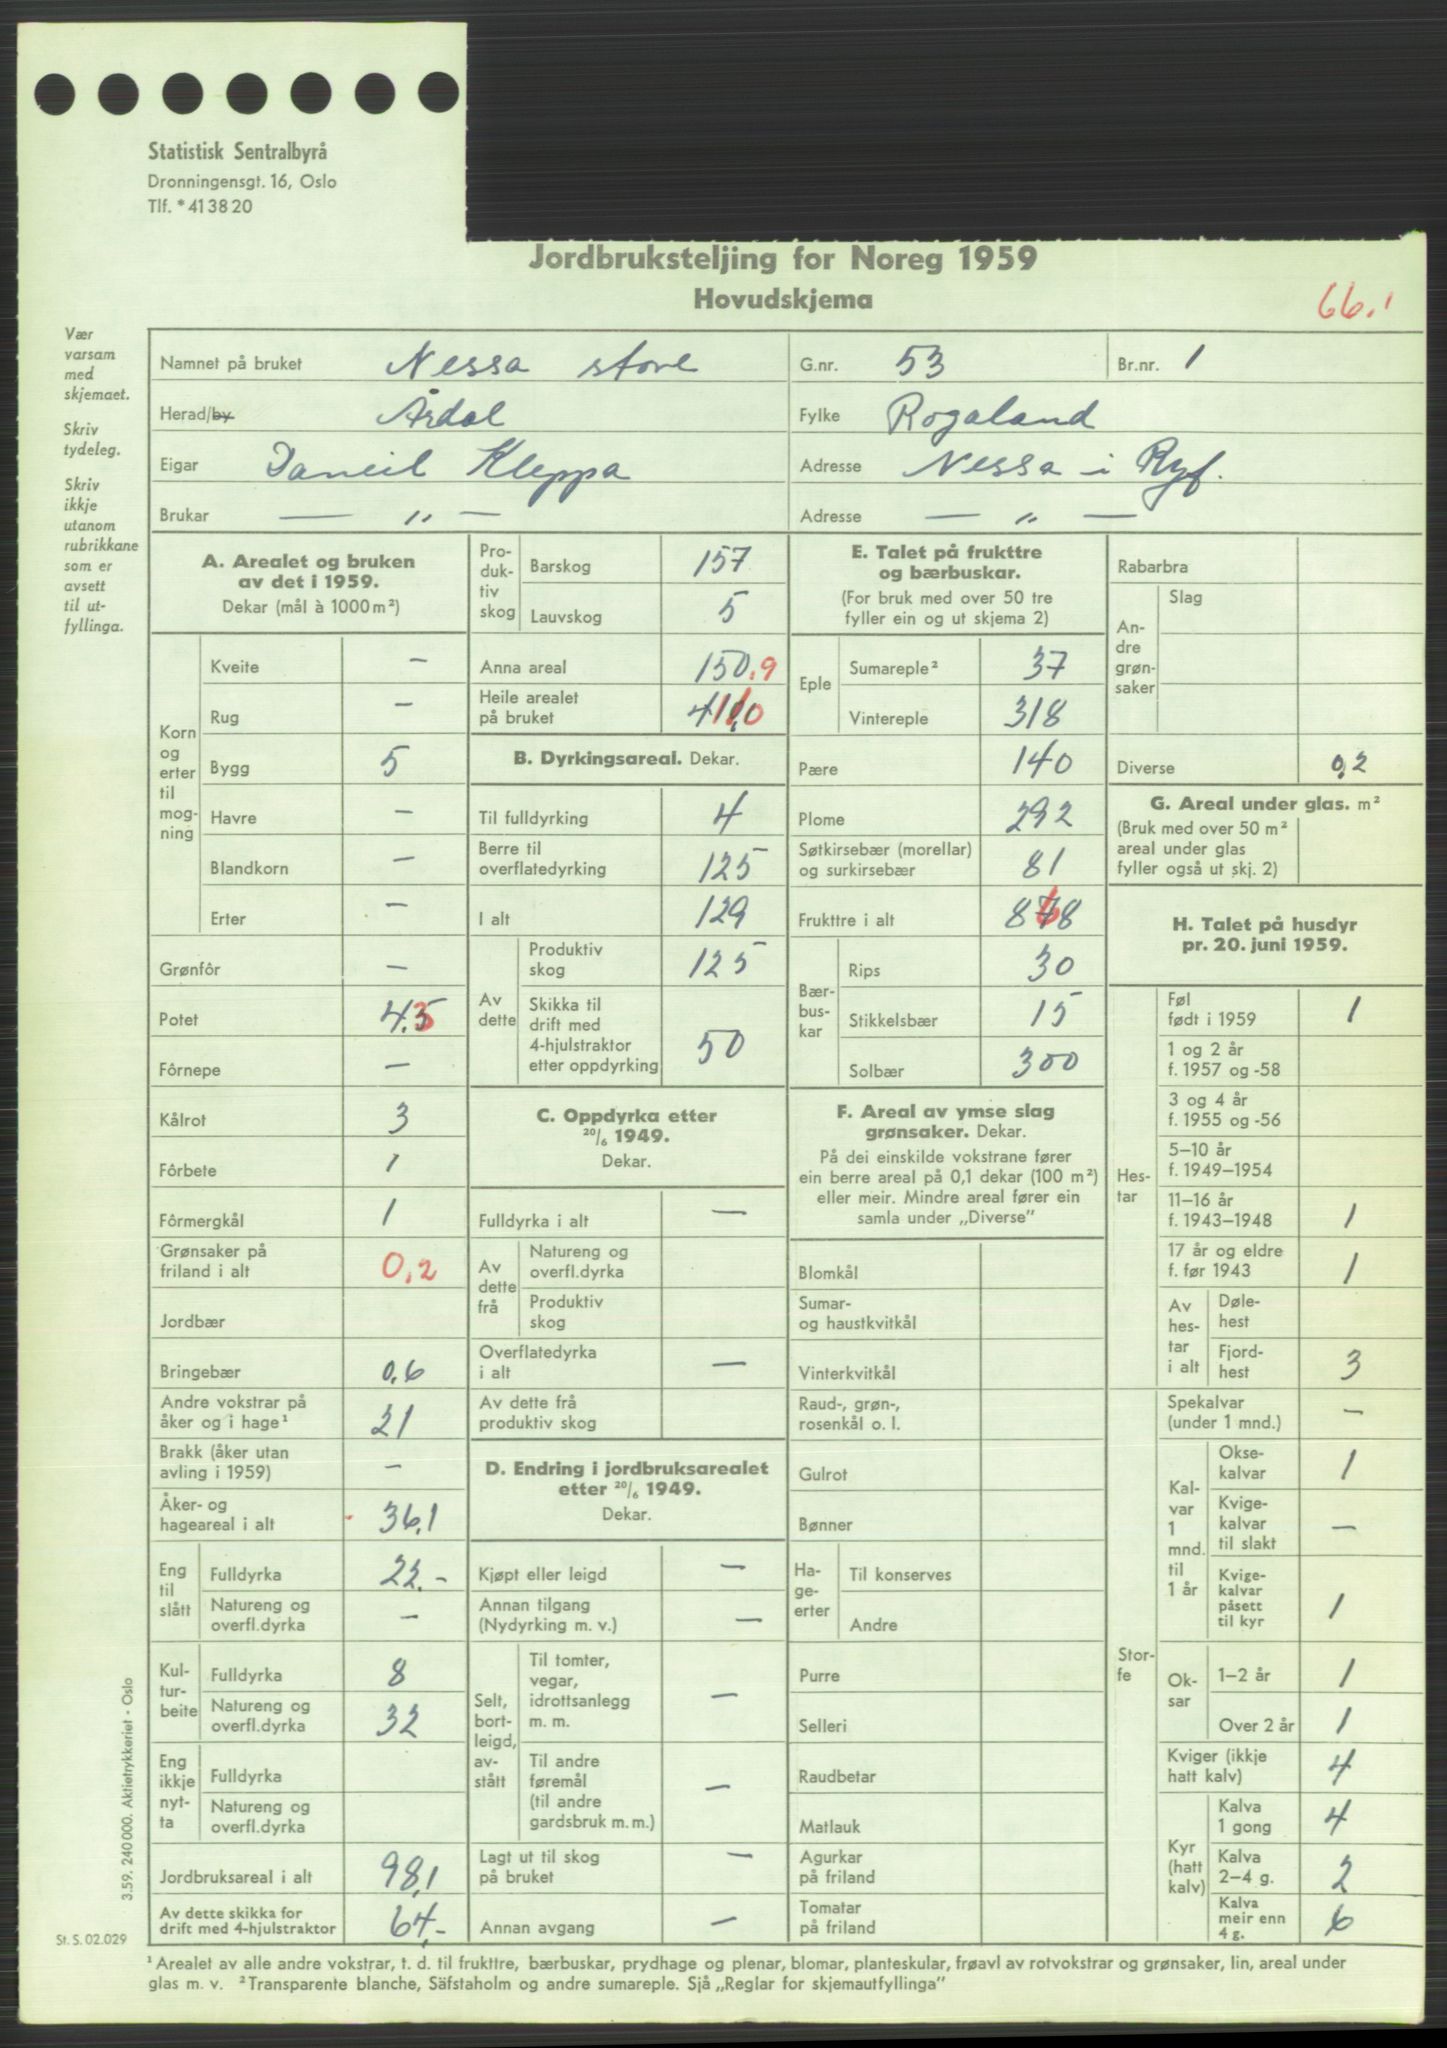 Statistisk Sentralbyrå
Dronningensgt. 16, Oslo
Tlf. *41 38 20
Jordbruksteljing for Noreg 1959
Hovudskjema
66.1
Vær
varsam
med
skjemaet.
Skriv
tydeleg.
Skriv
ikkje
utanom
rubrikkane
som er
avsett
til ut-
fyllinga.
Namnet på bruket Nessa store G.nr. 53 Br.nr. 1
Herad/by Årdal Fylke Rogaland
Eigar Daneil Kleppa Adresse Nessa i Ryf.
Brukar — „ — Adresse — „ —
A. Arealet og bruken
av det i 1959.
Dekar (mål à 1000 m²)
Korn
og
erter
til
mog-
ning
Kveite —
Rug —
Bygg 5
Havre —
Blandkorn —
Erter —
Grønfôr —
Potet 4,3
Fôrnepe —
Kålrot 3
Fôrbete 1
Fôrmergkål 1
Grønsaker på
friland i alt 0,2
Jordbær
Bringebær 0,6
Andre vokstrar på
åker og i hage¹ 21
Brakk (åker utan
avling i 1959) —
Åker- og
hageareal i alt 36,1
Eng
til
slått
Fulldyrka 22,-
Natureng og
overfl.dyrka —
Kul-
tur-
beite
Fulldyrka 8
Natureng og
overfl.dyrka 32
Eng
ikkje
nyt-
ta
Fulldyrka
Natureng og
overfl.dyrka
Jordbruksareal i alt 98,1
Av dette skikka for
drift med 4-hjulstraktor 64,-
Pro-
duk-
tiv
skog
Barskog 157
Lauvskog 5
Anna areal 150,9
Heile arealet
på bruket 411,0
B. Dyrkingsareal. Dekar.
Til fulldyrking 4
Berre til
overflatedyrking 125
I alt 129
Av
dette
Produktiv
skog 125
Skikka til
drift med
4-hjulstraktor
etter oppdyrking 50
C. Oppdyrka etter
20/6 1949.
Dekar.
Fulldyrka i alt —
Av
dette
frå
Natureng og
overfl.dyrka
Produktiv
skog
Overflatedyrka
i alt —
Av dette frå
produktiv skog
D. Endring i jordbruksarealet
etter 20/6 1949.
Dekar.
Kjøpt eller leigd —
Annan tilgang
(Nydyrking m. v.) —
Selt,
bort-
leigd,
av-
stått
Til tomter,
vegar,
idrottsanlegg
m. m. —
Til andre
føremål
(til andre
gardsbruk m. m.) —
Lagt ut til skog
på bruket —
Annan avgang —
E. Talet på frukttre
og bærbuskar.
(For bruk med over 50 tre
fyller ein og ut skjema 2)
Eple
Sumareple² 37
Vintereple 318
Pære 140
Plome 292
Søtkirsebær (morellar)
og surkirsebær 81
Frukttre i alt 868
Bær-
bus-
kar
Rips 30
Stikkelsbær 15
Solbær 300
F. Areal av ymse slag
grønsaker. Dekar.
På dei einskilde vokstrane fører
ein berre areal på 0,1 dekar (100 m²)
eller meir. Mindre areal fører ein
samla under „Diverse”
Blomkål
Sumar-
og haustkvitkål
Vinterkvitkål
Raud-, grøn-,
rosenkål o. l.
Gulrot
Bønner
Ha-
ge-
erter
Til konserves
Andre
Purre
Selleri
Raudbetar
Matlauk
Agurkar
på friland
Tomatar
på friland
Rabarbra
An-
dre
grøn-
saker
Slag
Diverse 0,2
G. Areal under glas. m²
(Bruk med over 50 m²
areal under glas
fyller også ut skj. 2)
H. Talet på husdyr
pr. 20. juni 1959.
Hes-
tar
Føl
født i 1959 1
1 og 2 år
f. 1957 og -58
3 og 4 år
f. 1955 og -56
5–10 år
f. 1949–1954
11–16 år
f. 1943–1948 1
17 år og eldre
f. før 1943 1
Av
hes-
tar
i alt
Døle-
hest
Fjord-
hest 3
Stor-
fe
Spekalvar
(under 1 mnd.) —
Kal-
var
1
mnd.
til
1 år
Okse-
kalvar 1
Kvige-
kalvar
til slakt —
Kvige-
kalvar
påsett
til kyr 1
Ok-
sar
1–2 år 1
Over 2 år 1
Kviger (ikkje
hatt kalv) 4
Kyr
(hatt
kalv)
Kalva
1 gong 4
Kalva
2–4 g. 2
Kalva
meir enn
4 g. 6
3.59. 240 000. Aktietrykkeriet - Oslo
St. S. 02.029
¹ Arealet av alle andre vokstrar, t. d. til frukttre, bærbuskar, prydhage og plenar, blomar, planteskular, frøavl av rotvokstrar og grønsaker, lin, areal under
glas m. v. ² Transparente blanche, Säfstaholm og andre sumareple. Sjå „Reglar for skjemautfyllinga”